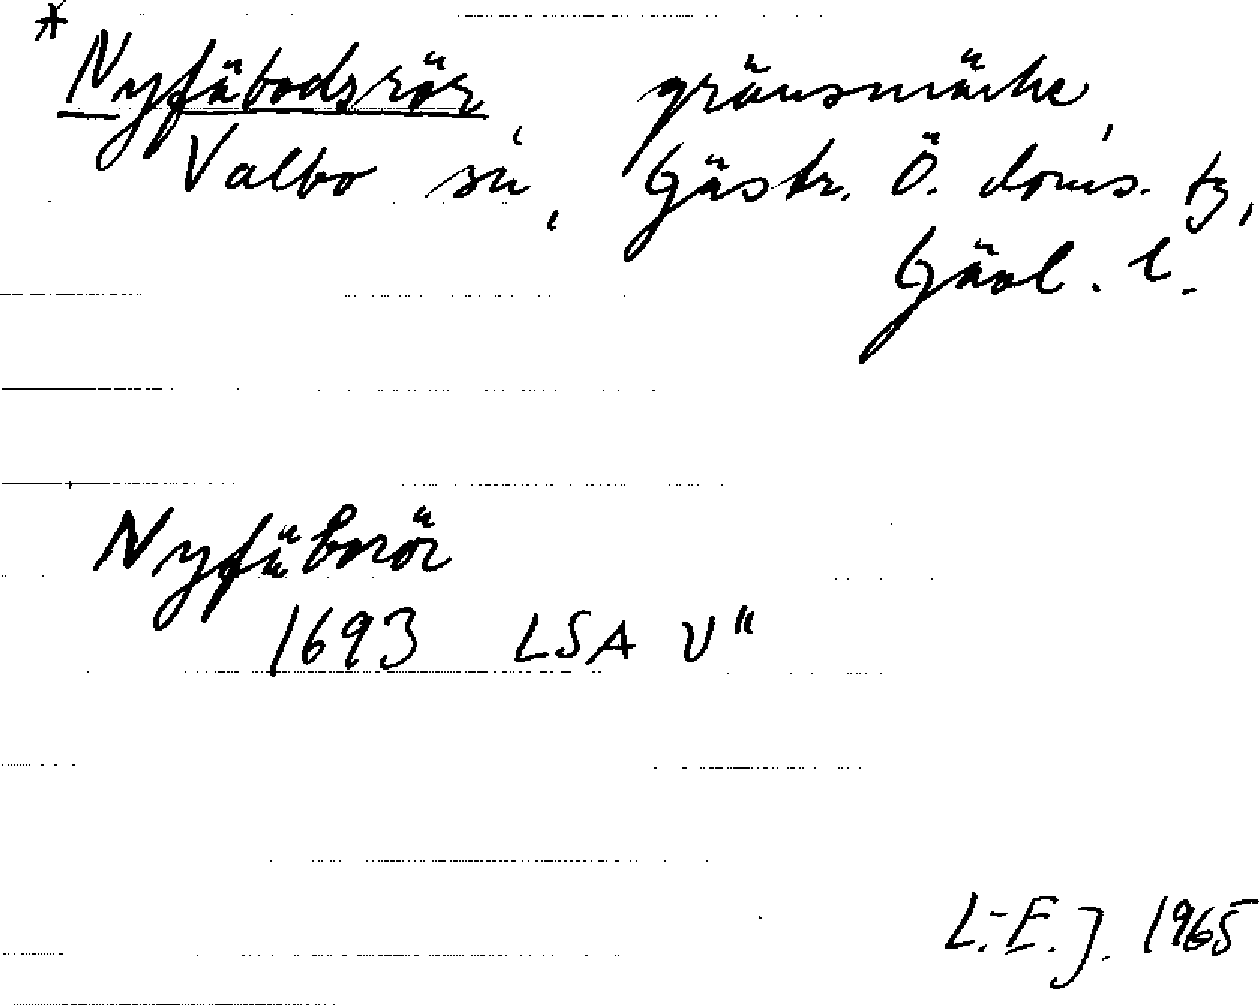 * Nyfäbodsrör, gränsmärke,
Valbo sn, Gästr. Ö. doms. tg,
Gävl. l.
Nyfäborör
1693 LSA V"
L.-E. J. 1965